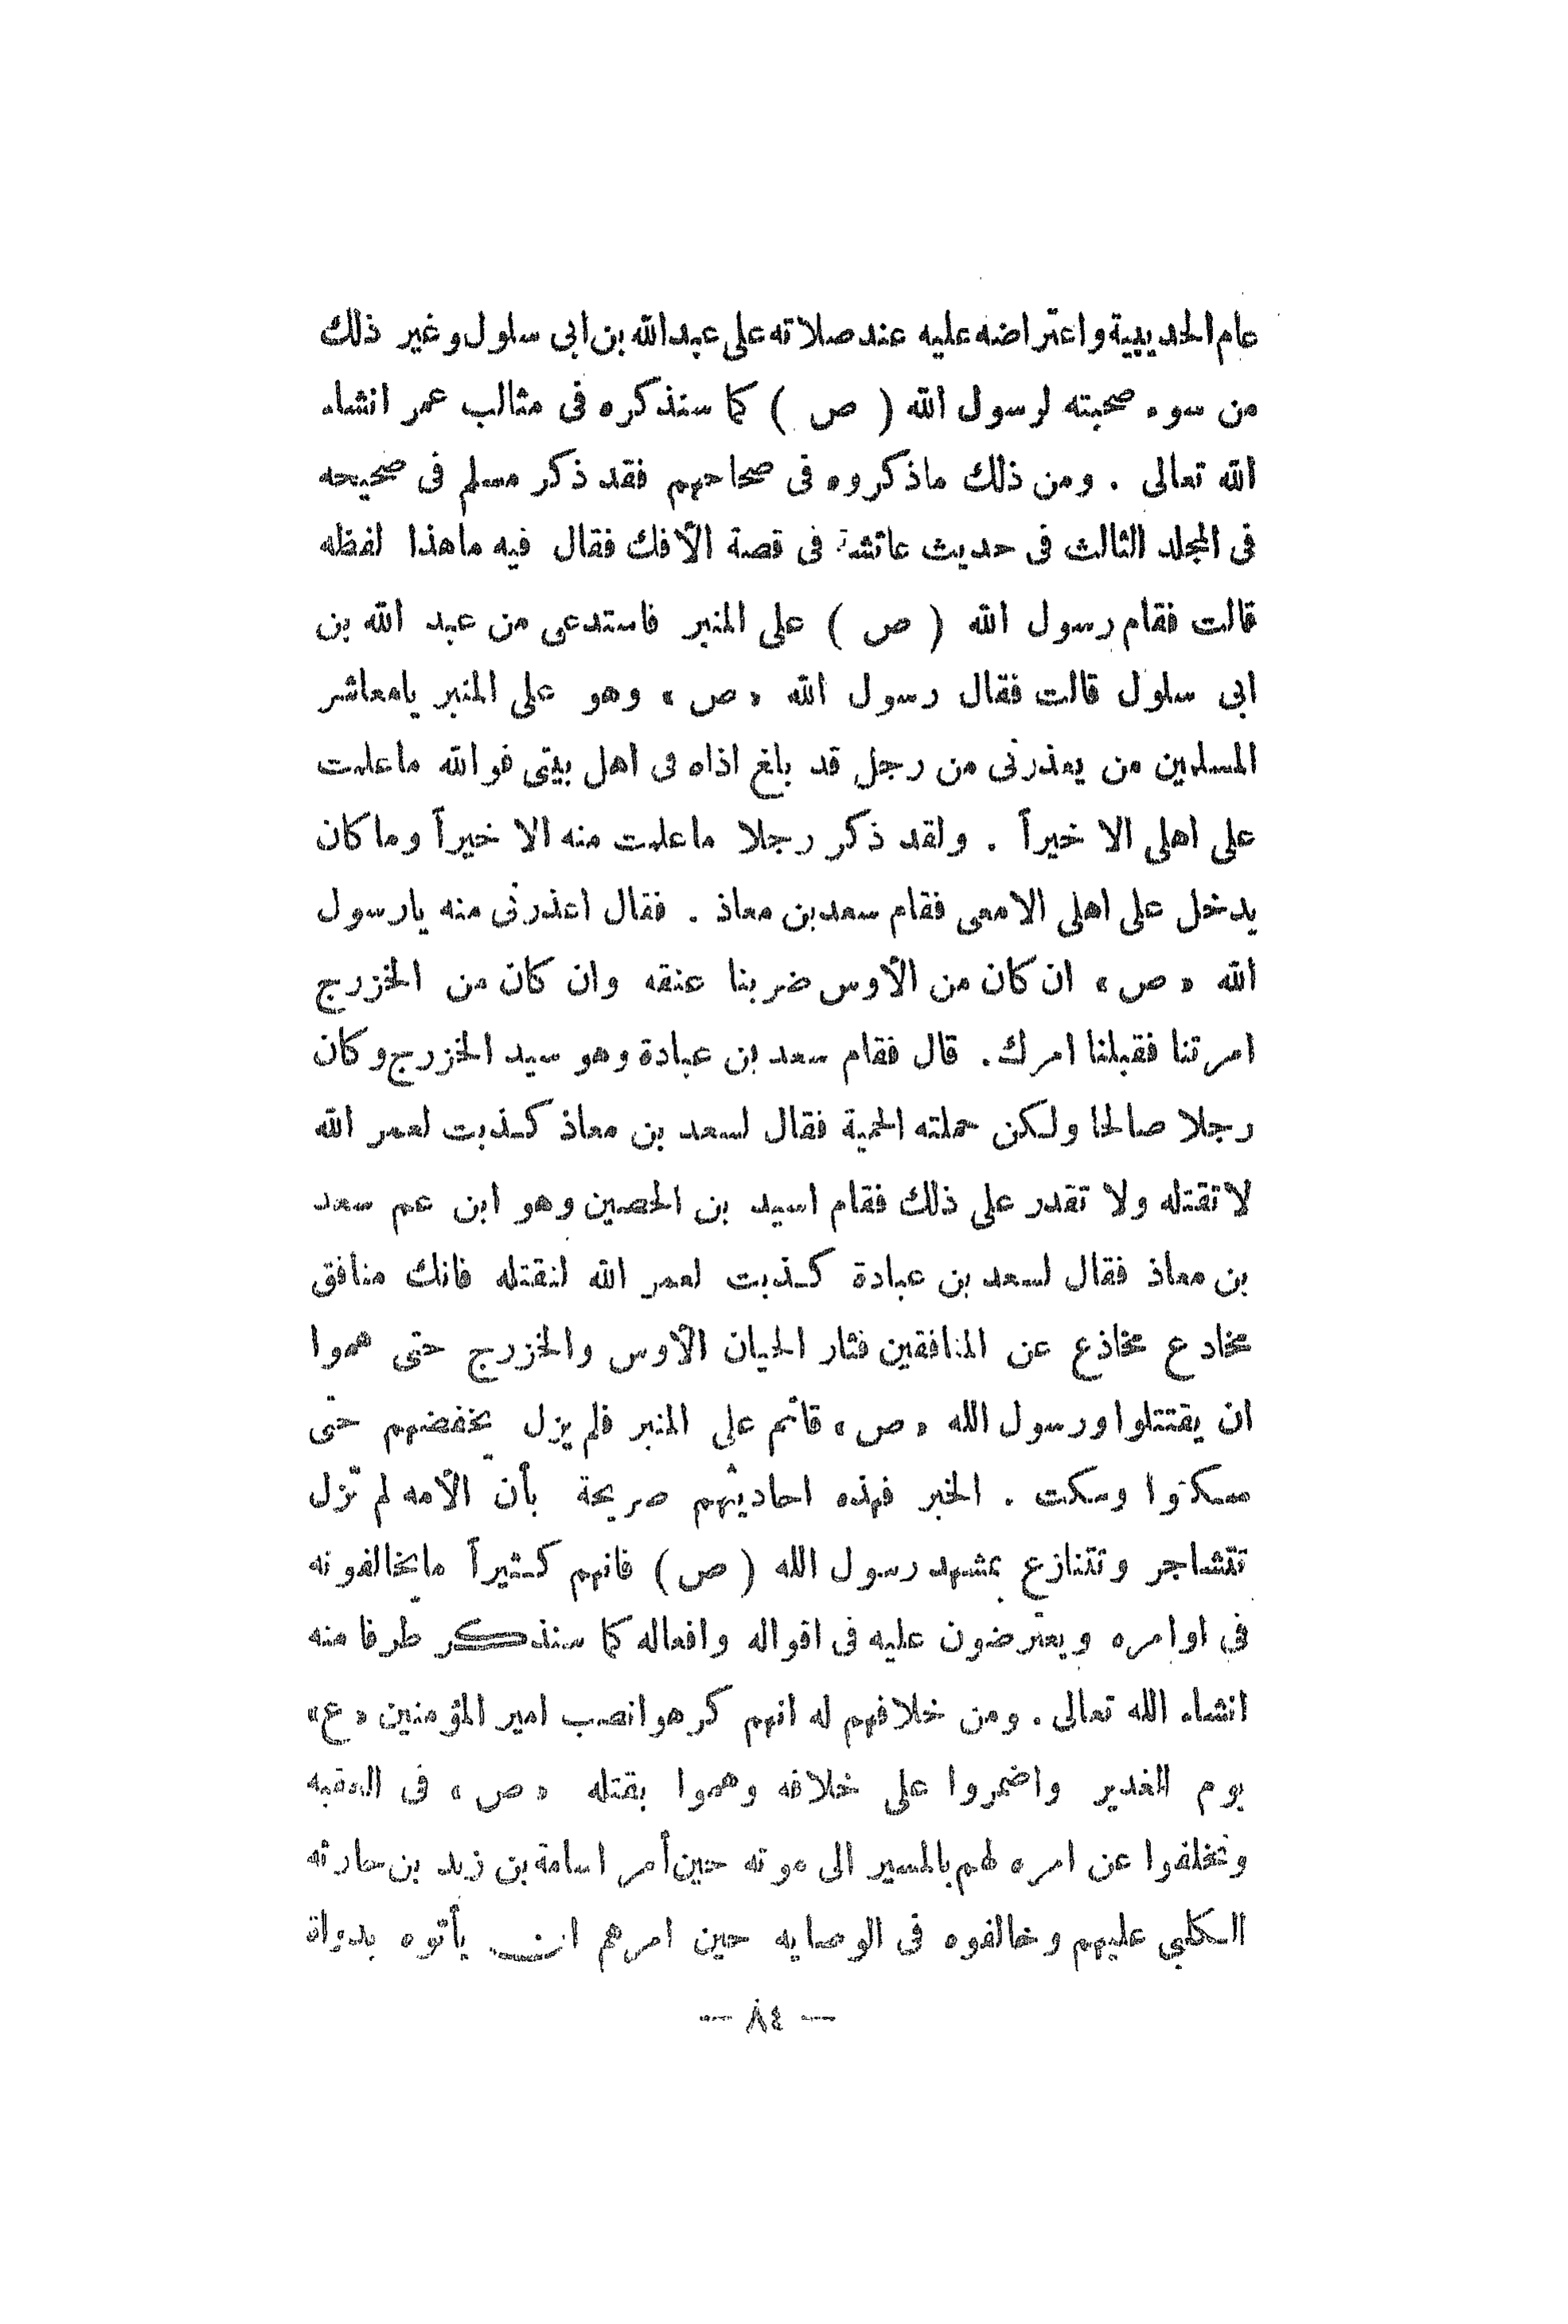 عام الحديبية واعتراضه عليه عند صلاته على عبدالله بن ابى سلول وغير ذلك
من سوء صحبته لرسول الله ( ص ) كما سنذكره فى مثالب عمر انشاء
الله تعالى . ومن ذلك ماذكروه فى صحاحهم فقد ذكر مسلم فى صحيحه
فى المجلد الثالث فى حديث عائشة فى قصة الأفك فقال فيه ماهذا لفظه
قالت فقام رسول الله ( ص ) على المنبر فاستدعى من عبد الله بن
ابى سلول قالت فقال رسول الله «ص» وهو على المنبر يامعاشر
المسلمين من يعذرنى من رجل قد بلغ اذاه فى اهل بيتى فوالله ماعلمت
على اهلى الا خيراً . ولقد ذكر رجلا ماعلمت منه الا خيراً وما كان
يدخل على اهلى الامعى فقام سعد بن معاذ . فقال اعذرنى منه يارسول
الله «ص» ان كان من الأوس ضربنا عنقه وان كان من الخزرج
امرتنا فقبلنا امرك . قال فقام سعد بن عبادة وهو سيد الخزرج وكان
رجلا صالحا ولكن حملته الحمية فقال لسعد بن معاذ كذبت لعمر الله
لاتقتله ولا تقدر على ذلك فقام اسيد بن الحصين وهو ابن عم سعد
بن معاذ فقال لسعد بن عبادة كذبت لعمر الله لنقتله فانك منافق
مخادع مخاذع عن المنافقين فثار الحيان الأوس والخزرج حتى هموا
ان يقتتلوا ورسول الله «ص» قائم على المنبر فلم يزل يخفضهم حتى
سكتوا وسكت . الخبر فهذه احاديثهم صريحة بأن الأمه لم تزل
تتشاجر وتتنازع بمشهد رسول الله ( ص ) فانهم كثيراً مايخالفونه
فى اوامره ويعترضون عليه فى اقواله وافعاله كما سنذكر طرفا منه
انشاء الله تعالى . ومن خلافهم له انهم كرهوا نصب امير المؤمنين «ع»
يوم الغدير واضمروا على خلافه وهموا بقتله «ص» فى العقبه
وتخلفوا عن امره لهم بالمسير الى موته حين أمر اسامة بن زيد بن حارثه
الكلبي عليهم وخالفوه فى الوصايه حين امرهم ان يأتوه بدواة
— ٨٤ —